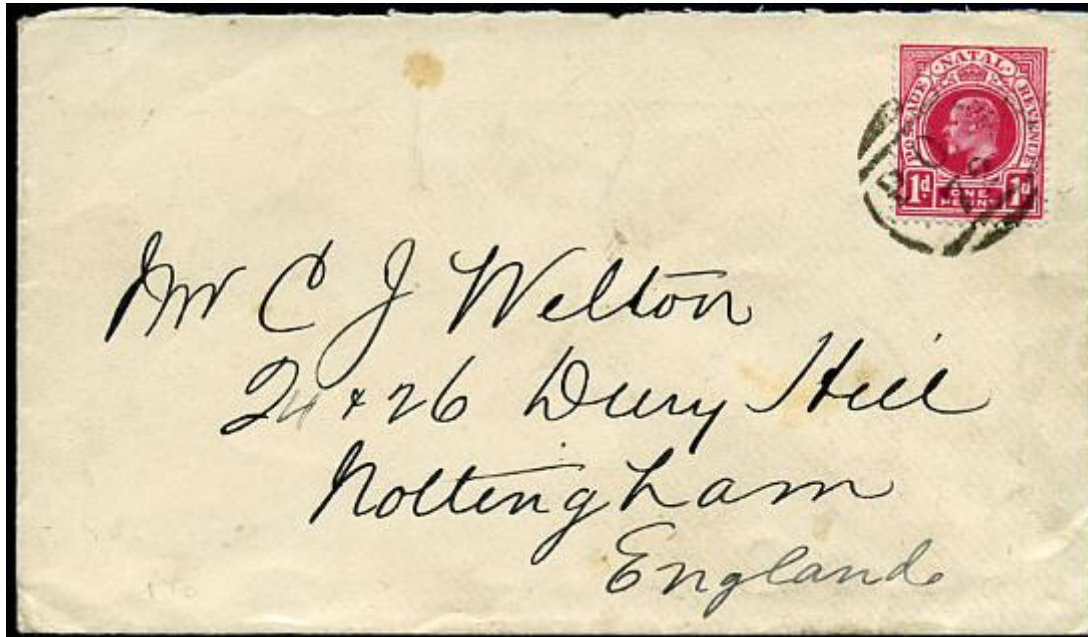 POSTAGE NATAL REVENUE
1d ONE PENNY 1d
Mr C J Welton
24 & 26 Drury Hill
Nottingham
England